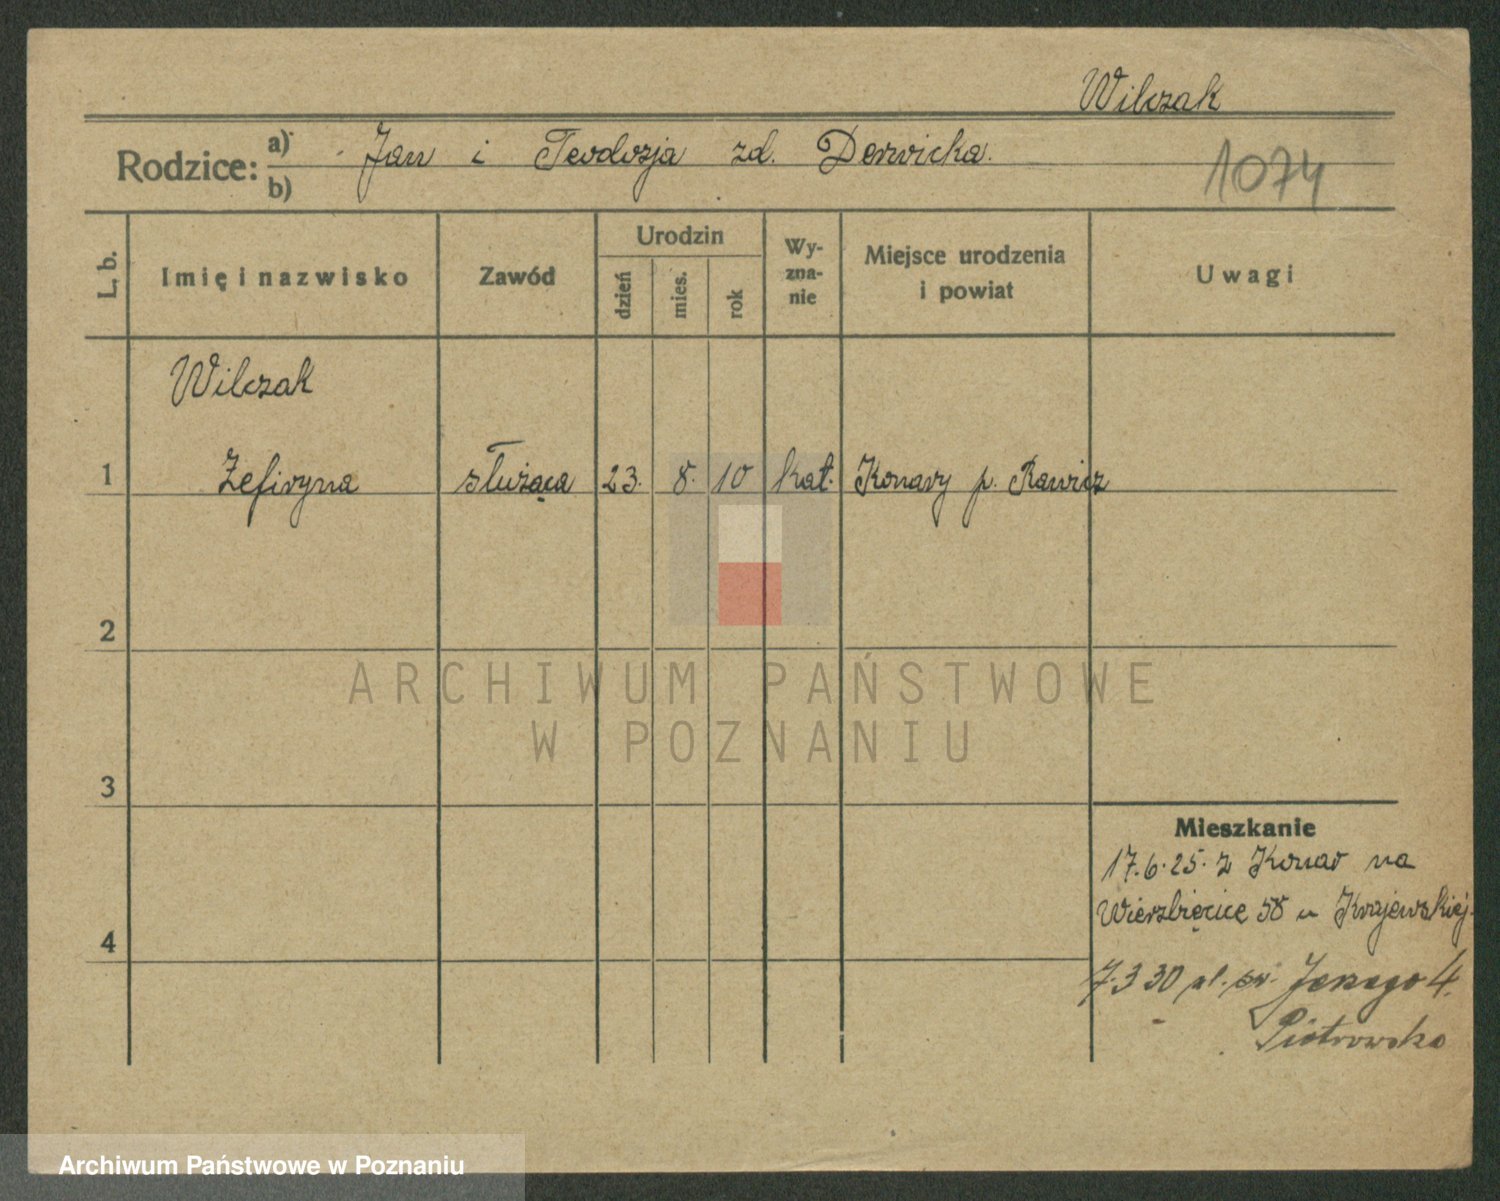 Wilczak
Rodzice: a) Jan i Teodozja zd. Derwicka.
b)
1074
L. b.
Imię i nazwisko
Zawód
Urodzin
dzień
mies.
rok
Wy-
zna-
nie
Miejsce urodzenia
i powiat
Uwagi
Wilczak
1 Zefiryna służąca 23. 8. 10 kat. Konary p. Rawicz
2
ARCHIWUM PAŃSTWOWE
W POZNANIU
3
Mieszkanie
17.6.25. z Konar na
Wierzbięcice 58 u Krajewskiej.
4
7.3 30 pl. św. Jerzego 4.
Piotrowska
Archiwum Państwowe w Poznaniu